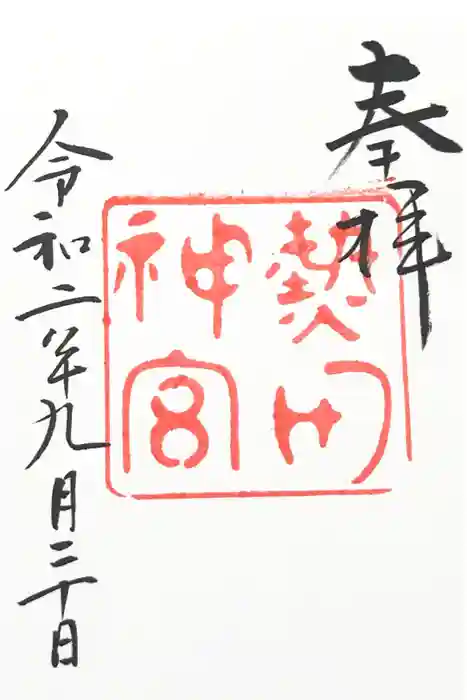 奉拝
熱田神宮
令和二年九月二十日